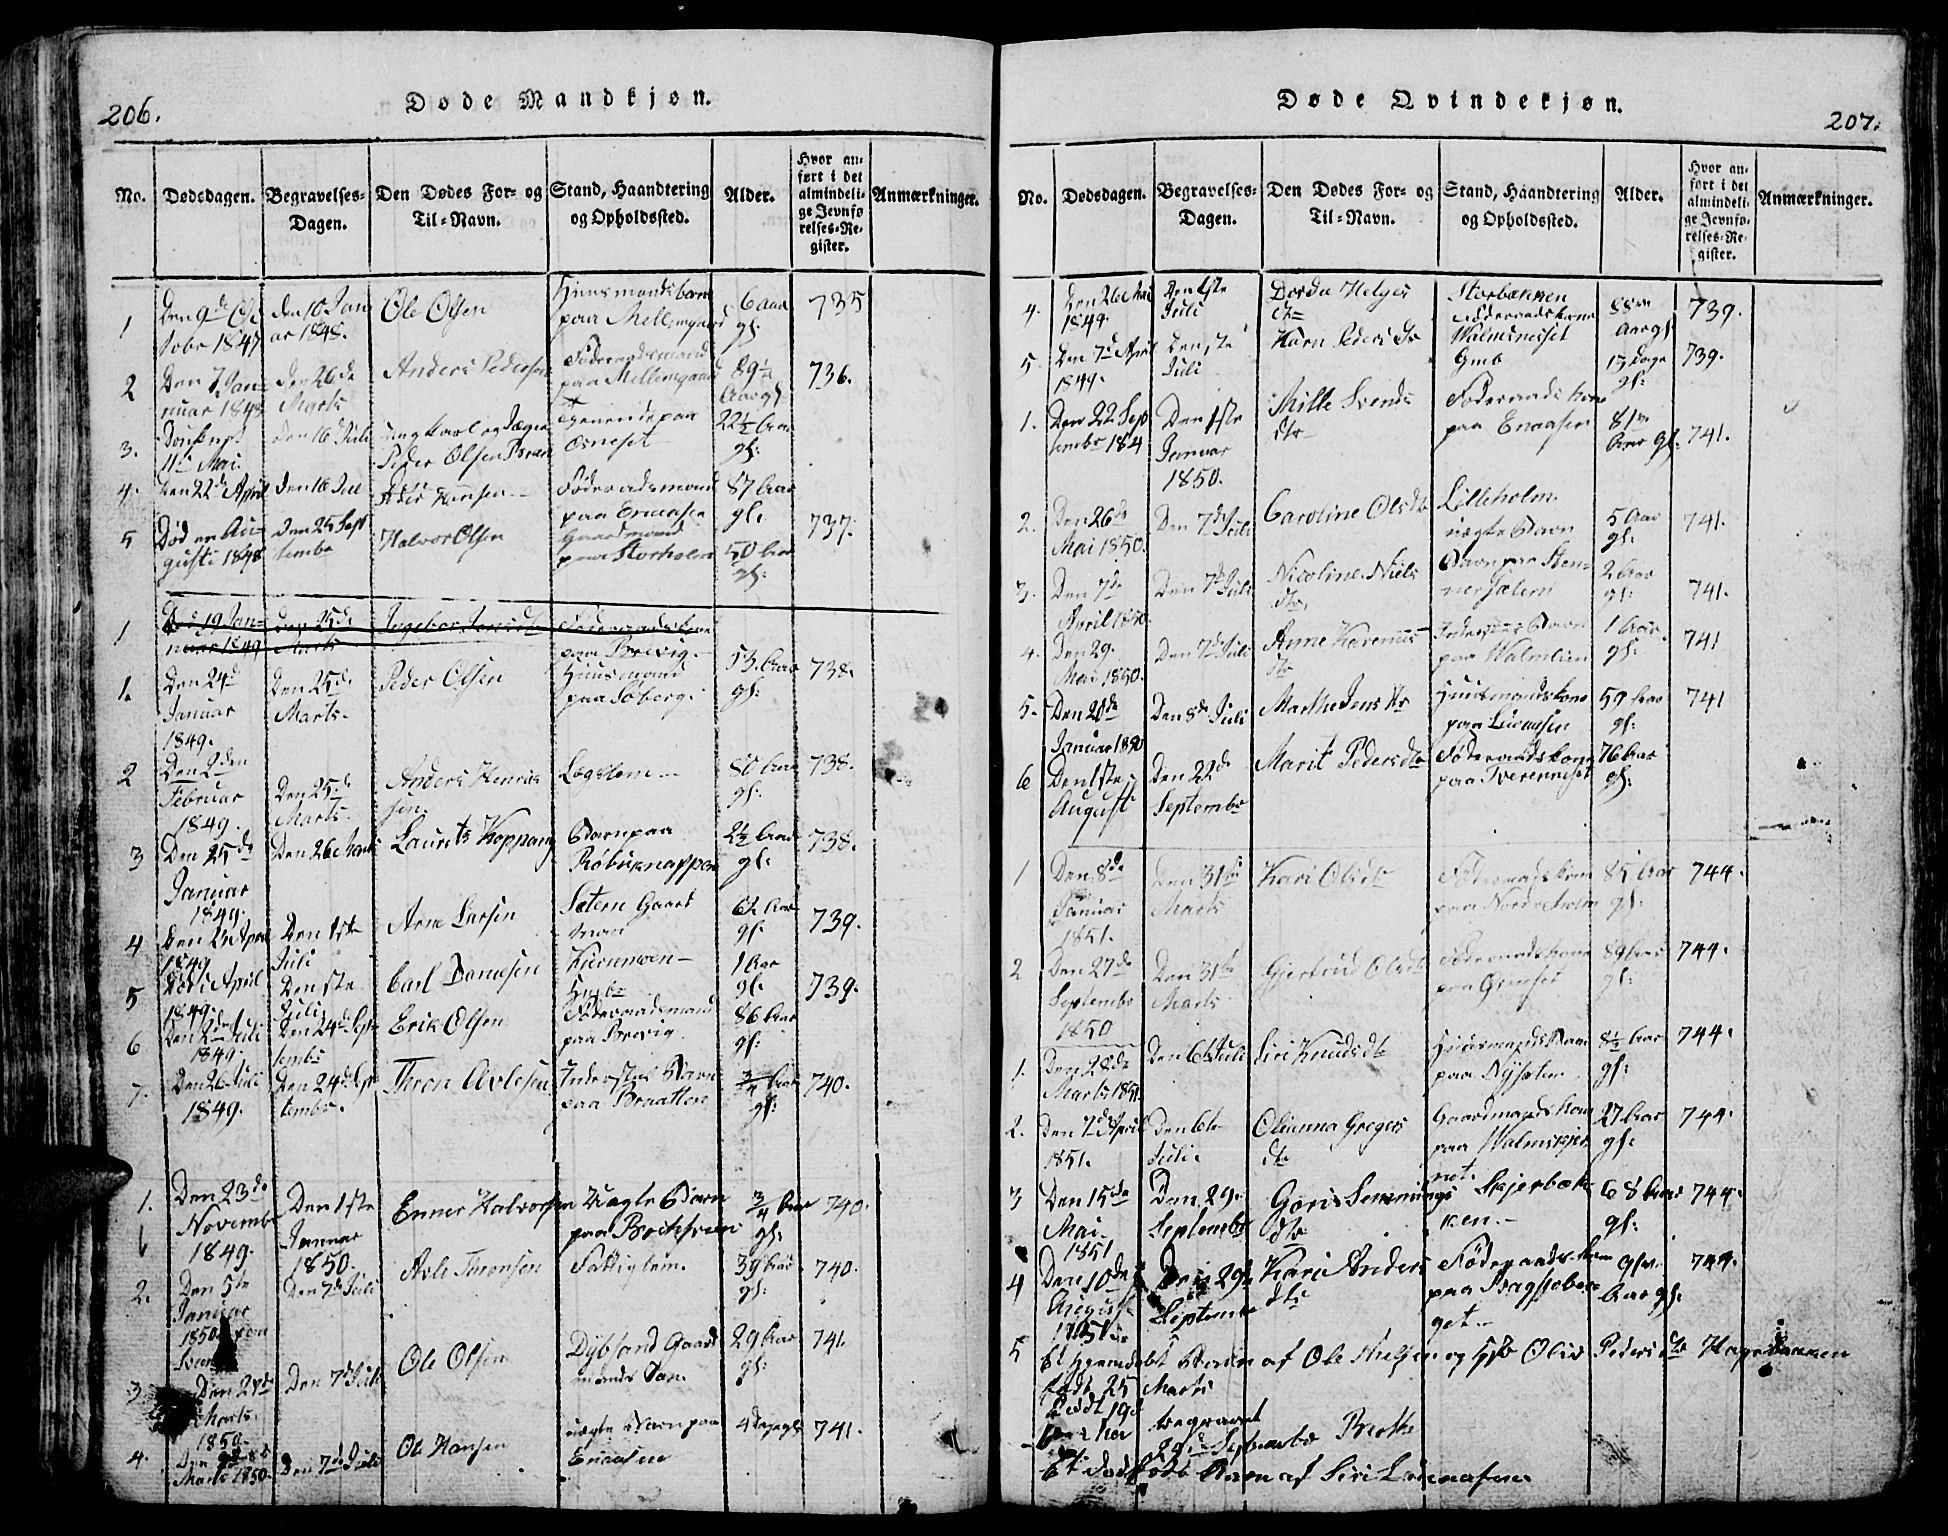 206.
Døde Mandkjøn.
No. Dødsdagen. Begravelses-Dagen. Den Dødes For- og Til-Navn. Stand, Haandtering og Opholdssted. Alder. Hvor anført i det almindelige Jevnførelses-Register. Anmærkninger.
1 Den 9de Octobr 1847 den 10 Januar 1848. Ole Olsen Huusmandsbarn paa Mellemgaard 6 Aar gl: 735
2 Den 7 Januar 1848 den 26de Marts Anders Pedersen Föderaadsmand paa Mellemgaard 89½ Aar gl 736.
3. 11te Mai. den 16 Juli ungkarl og Peder Olsen paa Osneset 22½ Aar gl:
4. den 22de April den 16 Jul Peder Hansen Föderaadsmand paa Enaasen 87 Aar gl.
5 Död en Augusti 1848 den 25 Septembr Halvor Olsen Gaardmand paa Storholm 50 Aar gl: 737.
1 Död 19 Januar 1849 den 25de Marts Ingebor Jensdtr Föderaadskone paa Brevig.
1. Den 24d Januar 1849. Den 25de Marts. Peder Olsen Huusmand paa Soberg. 53 Aar gl: 738.
2 Den 2den Februar 1849. Den 25de Marts. Anders Henriksen Lægslem 80 Aar gl: 738.
3 Den 25de Januar 1849. Den 26 Marts Laurits Koppang Barn paa Röbüknappen 2½ Aar gl: 738.
4 Den 24 April 1849 Den 1ste Juli Arne Larsen Sætern Gaardman 62 Aar gl. 739.
5 Död i April 1849. Den 1ste Juli. Carl Danielsen Kiernmoen 1 Aar gl. 739.
6 Den 2den Juli 1849. Den 24de Septembr Erik Olsen Föderaadsmand paa Brevig. 86 Aar gl:
7. Den 26 Juli 1849. Den 24de Septembr. Thron Avlesen Inderstes Barn paa Braatten ¾ Aar gl: 740.
1. Den 23de Novembr 1849. Den 1ste Januar 1850. Enner Halvorsen Uægte Barn paa ¾ Aar gl: 740.
2. Den 5te Januar 1850 Den 7de Juli Avle Tronsen Fattiglem. 39 Aar gl: 740.
3 Den 27de Marts. 1850. Den 7de Juli Ole Olsen Dybsand Gaardmands Sön. 29 Aar gl: 741.
4. Den Marts 1850. Den 7de Juli Ole Hansen uægte Barn paa Enaasen 4 dage gl 741.
207.
Døde Qvindekjøn.
No. Dødsdagen. Begravelses-Dagen. Den Dødes For- og Til-Navn. Stand, Haandtering og Opholdssted. Alder. Hvor anført i det almindelige Jevnførelses-Register. Anmærkninger.
4. Den 26 Mai 1849. Den 1ste Juli Dordu Helges dtr Storbækken Föderaadskone 88 Aar gl 739.
5. Den 7de April 1849. Den 1ste Juli Karn Peders dr Walmsneset Gmb 13 dage gl: 739.
1. Den 22 Septembr 184 Den 1ste Januar 1850. Mille Svends dtr Föderaads Kone paa Enaasen 81 Aar gl: 741.
2. Den 26de Mai 1850. Den 7de Juli Caroline Olsdtr Lilleholm uægte Barn 5 Aar gl: 741.
3. Den 7de April 1850. Den 7de Juli Nicoline Niels dtr, Barn paa Stennersætern 2 Aar gl: 741.
4. Den 29. Mai 1850. Den 7de Juli Anne Havenus dtr Inderstes Barn paa Walmlien 1 Aar gl: 741
5. Den 20de Januar 1850 Den 8de Juli Marthe Jens dtr Huusmandskone paa 59 Aar gl: 741
6 Den 1ste August Den 22de Septembr Marit Pedersdtr Föderaadskone paa Tverenneset 76 Aar gl:
1 Den 8de Januar 1851. Den 31te Marts Kari Olsdtr Föderaadskone paa Nordreholm 85 Aar gl: 744.
2 Den 27de Septembr 1850 Den 31te Marts Gjertrud Olsdtr Föderaadskone paa 89 Aar gl: 744.
1. Den 28de Marts 1851. Den 6te Juli Siri Knudsdtr Huusmands Barn paa Nysæter 8½ Aar gl: 744.
2. Den 2de April 1851. Den 6te Juli. Olianna Gregers dtr Gaardmands Kone paa Walmskjernet. 27 Aar gl: 744.
3 Den 15de Mai. 1851 Den 29. Septembr Goris Semmings dtr Skjerbækken. 68 Aar gl: 744.
4 Den 10de August 1851 Den 29de Septembr Kari Anders dtr Föderaadskone paa Bagstoberget. 91 Aar gl: 744.
5 Et hjemedöbt Barn af Ole Nielsen og Olio Pedersdtr Hagebakken
födt 25 Marts
Död 19d begravet
29de Septembr
Et dødfödt Barn af Siri